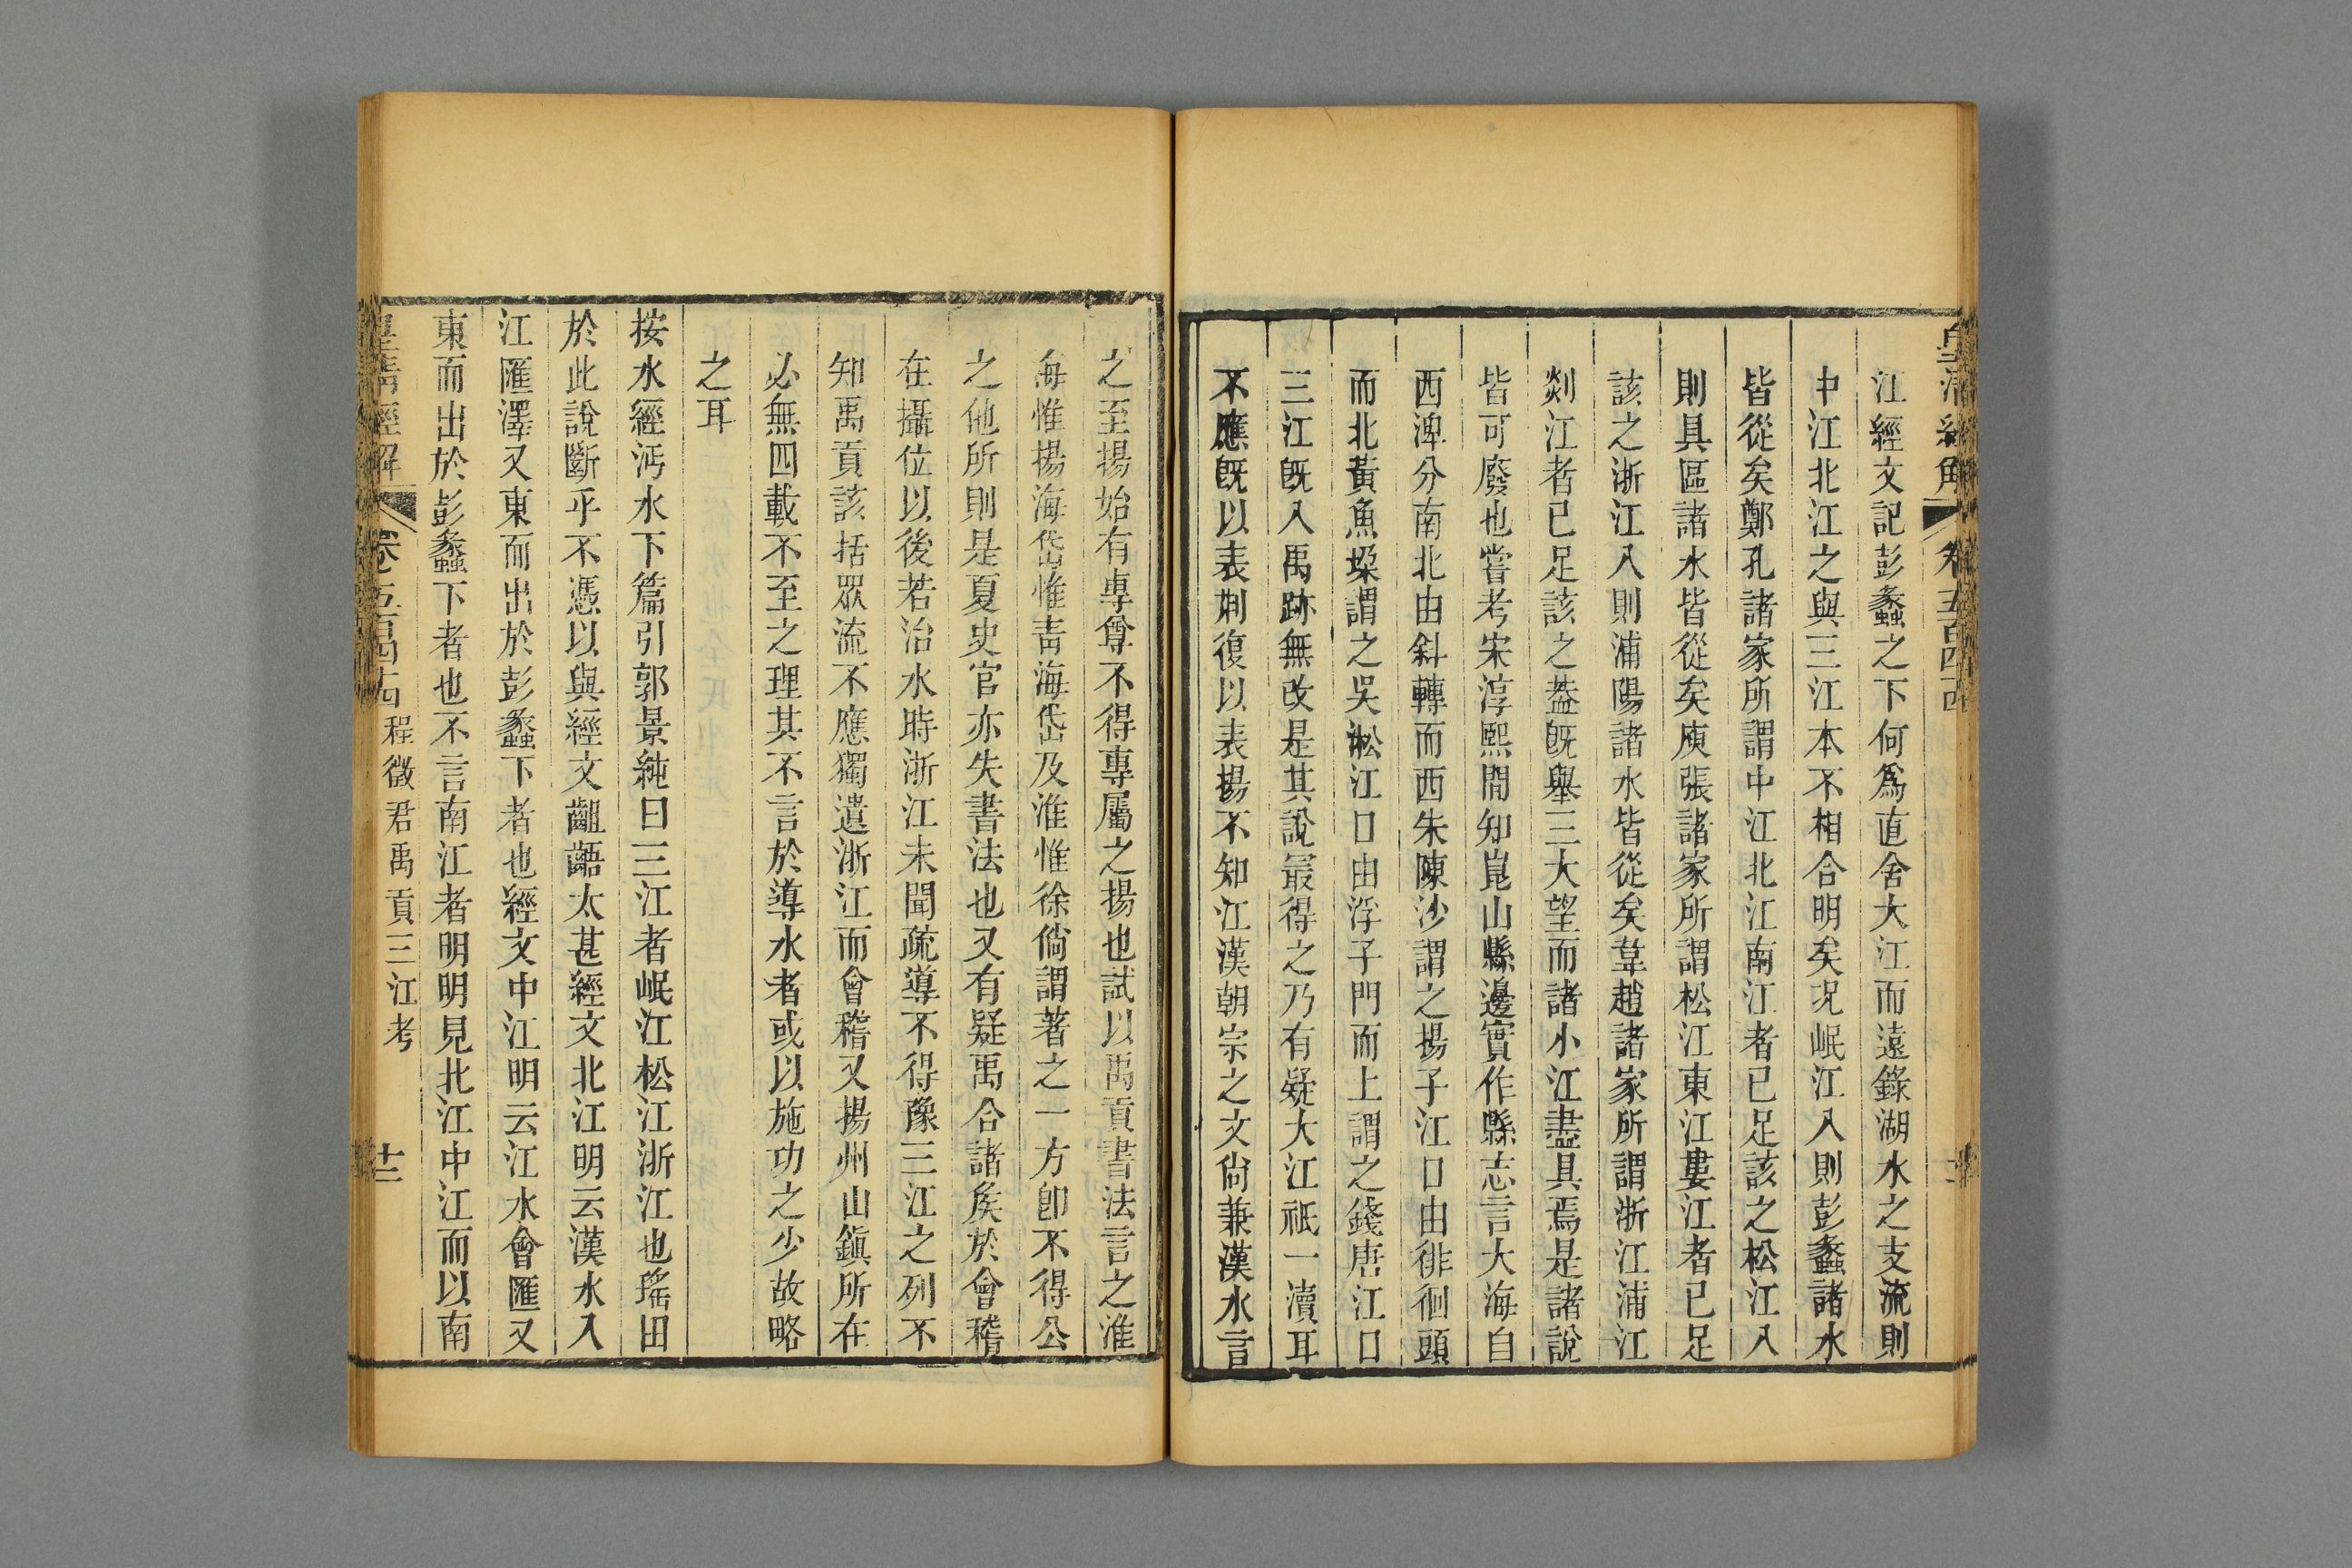 皇清經解 卷五百四十四
江經文記彭蠡之下何爲直舍大江而遠錄湖水之支流則
中江北江之與三江本不相合明矣况岷江入則彭蠡諸水
皆從矣鄭孔諸家所謂中江北江南江者已足該之松江入
則具區諸水皆從矣庾張諸家所謂松江東江婁江者已足
該之浙江入則浦陽諸水皆從矣韋趙諸家所謂浙江浦江
剡江者已足該之葢旣舉三大望而諸小江盡具焉是諸說
皆可廢也嘗考宋淳熙閒知崑山縣邊實作縣志言大海自
西渒分南北由斜轉而西朱陳沙謂之揚子江口由徘徊頭
而北黃魚垜謂之吳淞江口由浮子門而上謂之錢唐江口
三江旣入禹跡無改是其說最得之乃有疑大江祗一瀆耳
不應旣以表荆復以表揚不知江漢朝宗之文尙兼漢水言
之至揚始有專尊不得專屬之揚也試以禹貢書法言之淮
海惟揚海岱惟靑海岱及淮惟徐倘謂著之一方卽不得公
之他所則是夏史官亦失書法也又有疑禹合諸矦於會稽
在攝位以後若治水時浙江未聞疏導不得豫三江之列不
知禹貢該括眾流不應獨遺浙江而會稽又揚州山鎭所在
必無四載不至之理其不言於導水者或以施功之少故略
之耳
按水經沔水下篇引郭景純曰三江者岷江松江浙江也瑤田
於此說斷乎不憑以與經文齟齬太甚經文北江明云漢水入
江匯澤又東而出於彭蠡下者也經文中江明云江水會匯又
東而出於彭蠡下者也不言南江者明明見北江中江而以南
皇清經解 卷五百四十四 程徵君禹貢三江考 十二